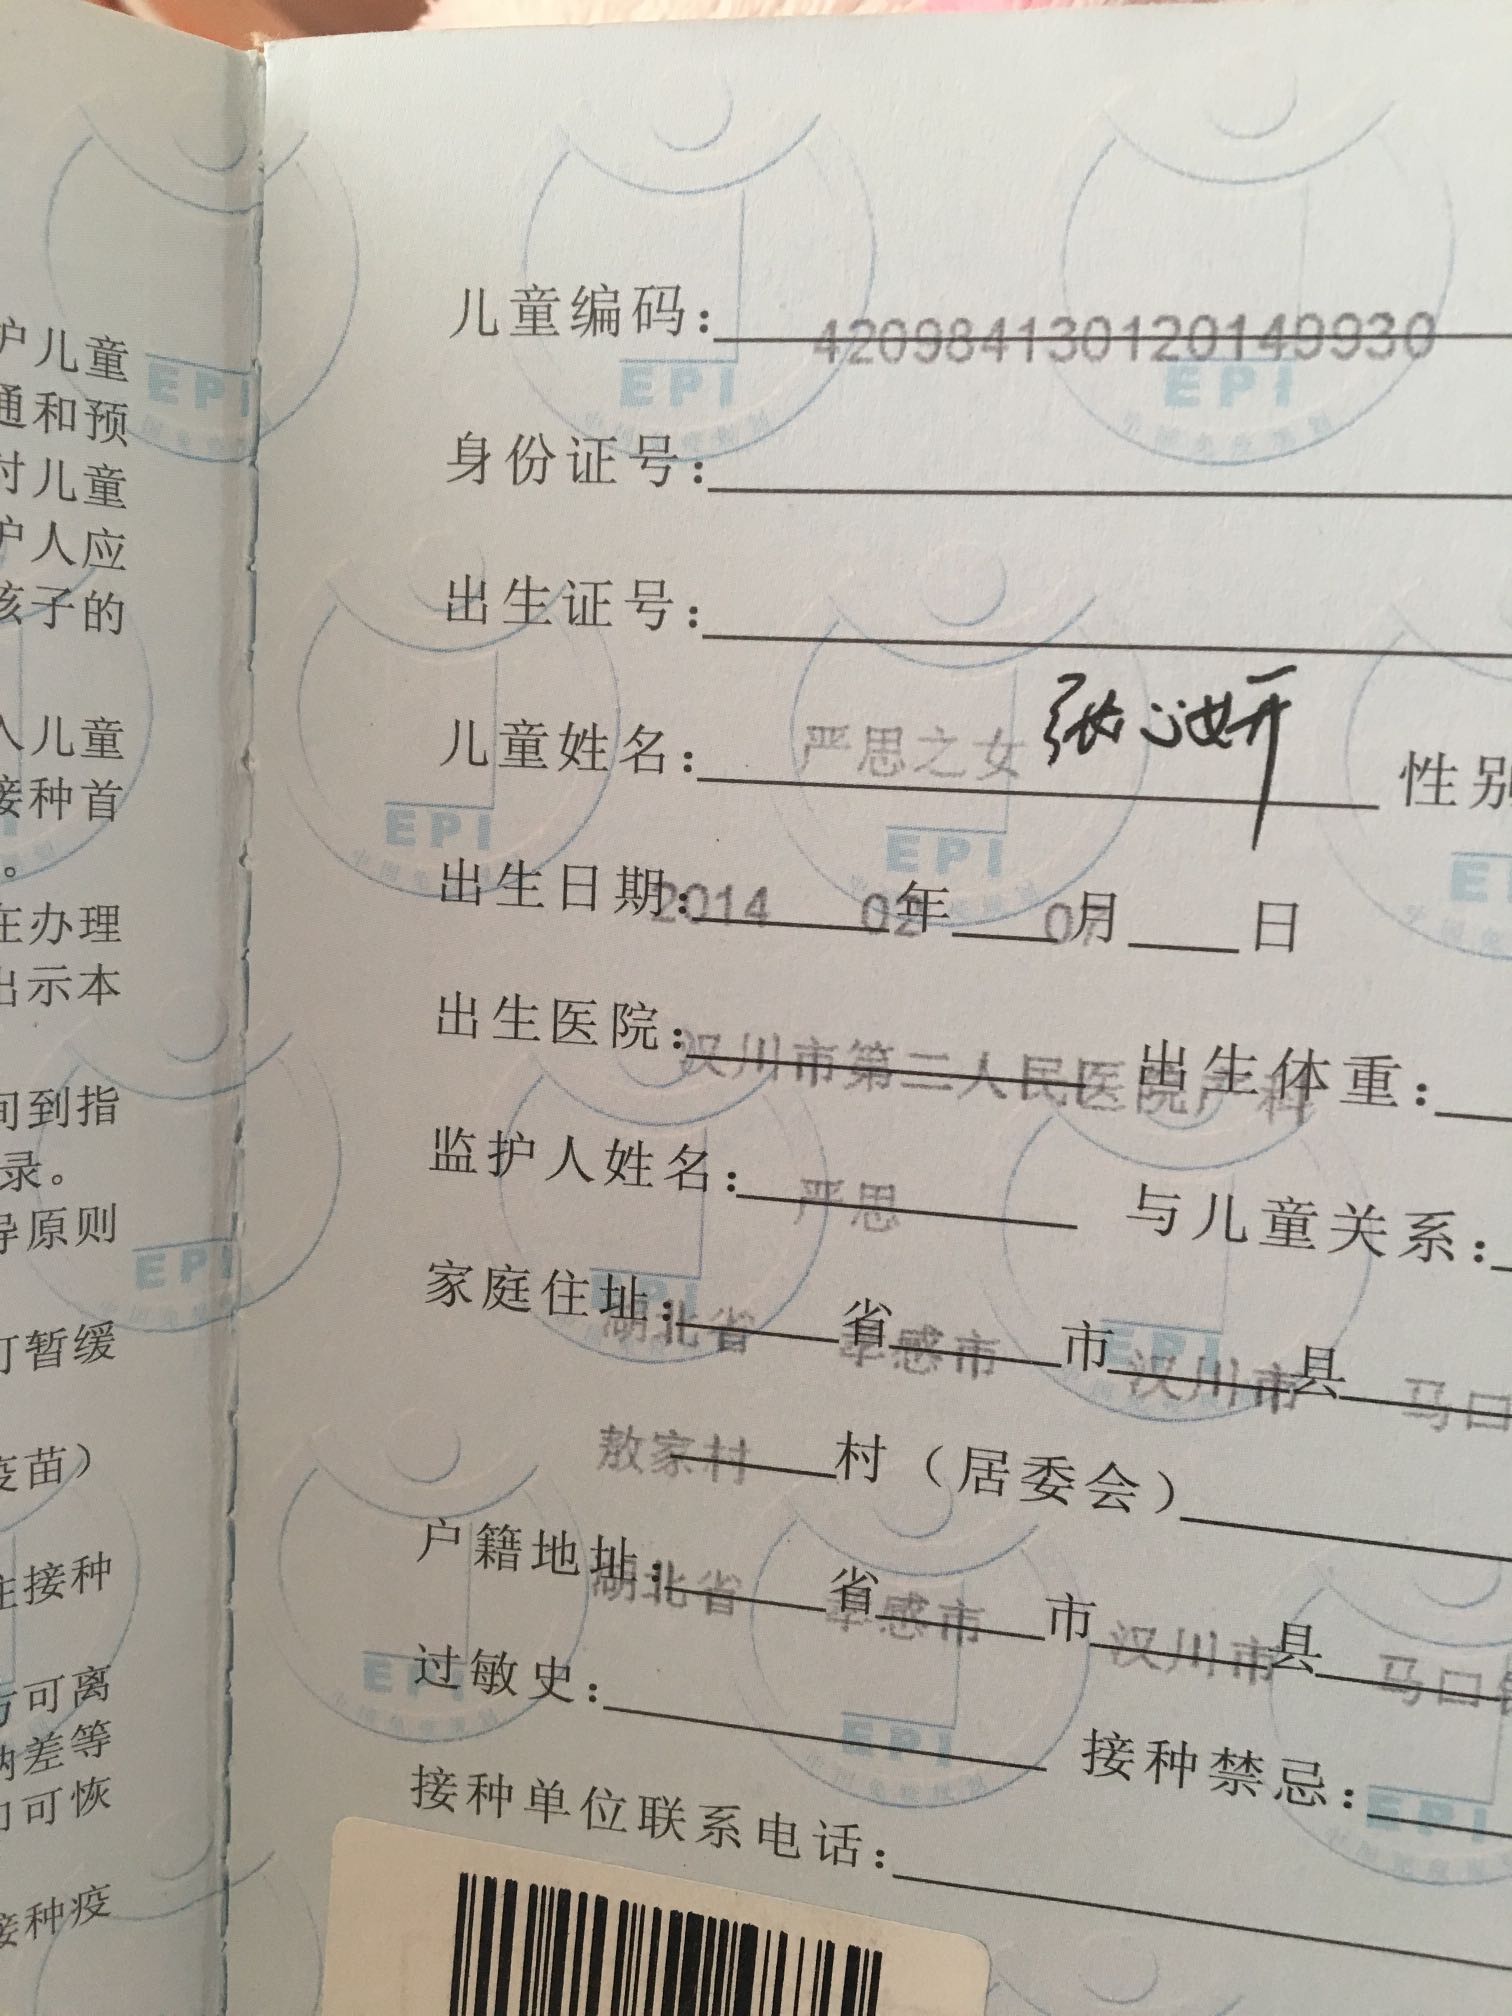 护儿童
通和预
对儿童
护人应
孩子的
人儿童
接种首
。
在办理
出示本
间到指
录。
导原则
暂缓
疫苗）
接种
可离
差等
可恢
接种疫
儿童编码：420984130120149930
身份证号：
出生证号：
儿童姓名：严思之女 张心妍 性别
出生日期：2014 02年 07月 日
出生医院：汉川市第二人民医院产科 出生体重：
监护人姓名：严思 与儿童关系：
家庭住址：湖北省 省 孝感市 市 汉川市 县 马口
敖家村 村（居委会）
户籍地址：湖北省 省 孝感市 市 汉川市 县 马口镇
过敏史： 接种禁忌：
接种单位联系电话：
EPI
EPI
EPI
EPI
EPI
EPI
EPI
EPI
EPI
EPI
EPI